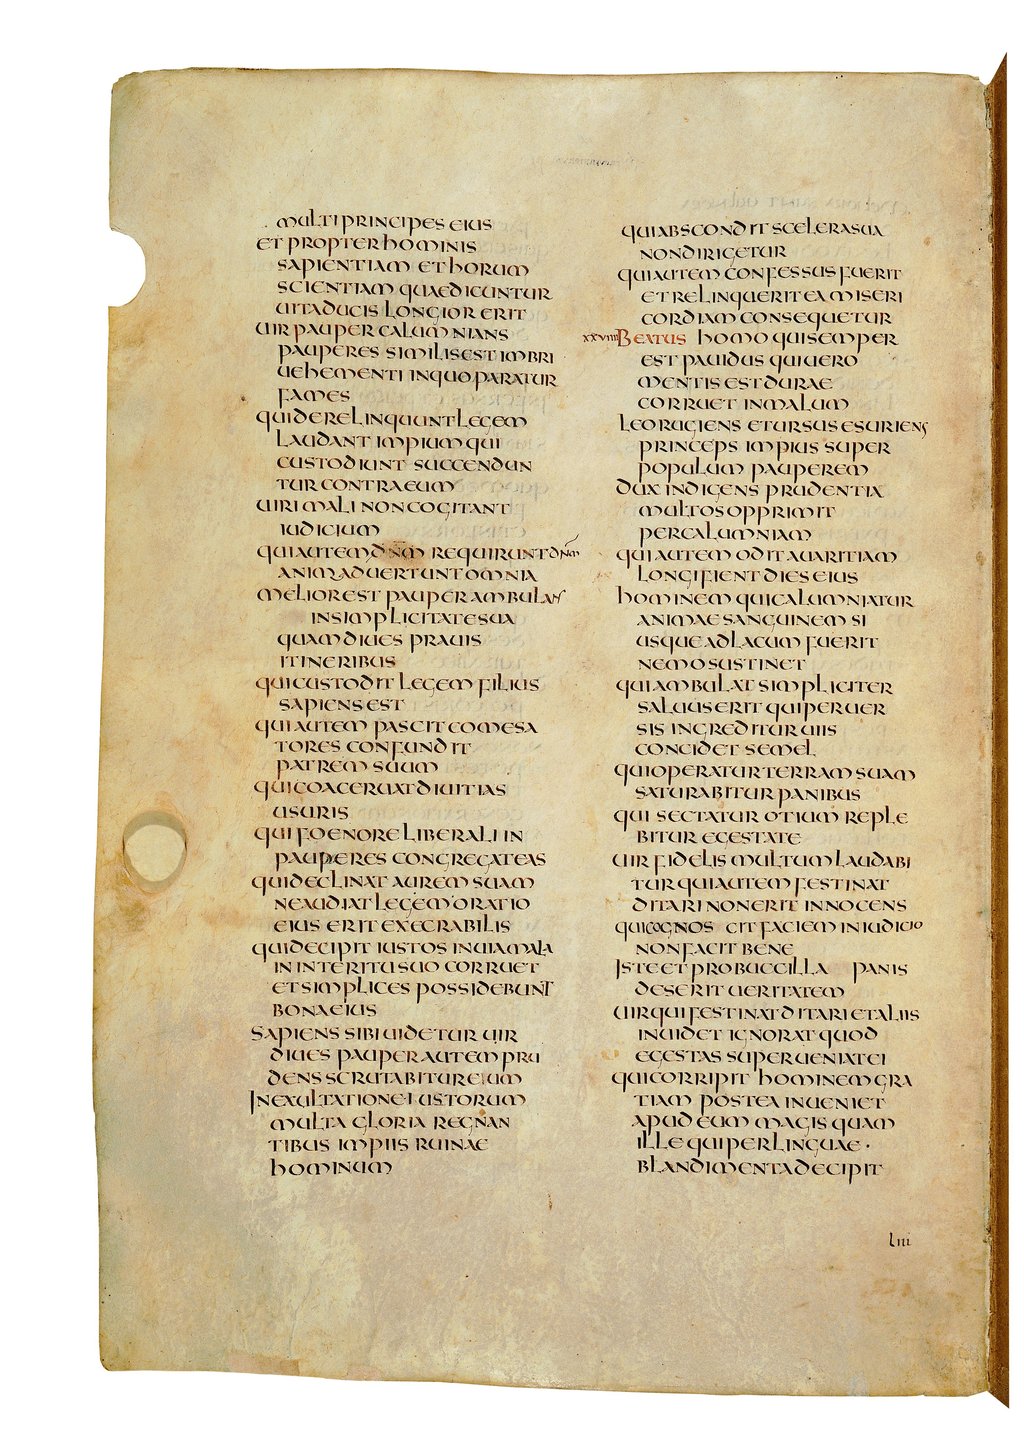 MULTI PRINCIPES EIUS
ET PROPTER HOMINIS
SAPIENTIAM ET HORUM
SCIENTIAM QUAE DICUNTUR
UITA DUCIS LONGIOR ERIT
UIR PAUPER CALUMNIANS
PAUPERES SIMILIS EST IMBRI
UEHEMENTI IN QUO PARATUR
FAMES
QUI DERELINQUUNT LEGEM
LAUDANT IMPIUM QUI
CUSTODIUNT SUCCENDUN
TUR CONTRA EUM
UIRI MALI NON COGITANT
IUDICIUM
QUI AUTEM DNM REQUIRUNT DNM
ANIMADUERTUNT OMNIA
MELIOR EST PAUPER AMBULANS
IN SIMPLICITATE SUA
QUAM DIUES PRAUIS
ITINERIBUS
QUI CUSTODIT LEGEM FILIUS
SAPIENS EST
QUI AUTEM PASCIT COMESA
TORES CONFUNDIT
PATREM SUUM
QUI COACERUAT DIUITIAS
USURIS
QUI FOENORE LIBERALI IN
PAUPERES CONGREGAT EAS
QUI DECLINAT AUREM SUAM
NE AUDIAT LEGEM ORATIO
EIUS ERIT EXECRABILIS
QUI DECIPIT IUSTOS IN UIA MALA
IN INTERITU SUO CORRUET
ET SIMPLICES POSSIDEBUNT
BONA EIUS
SAPIENS SIBI UIDETUR UIR
DIUES PAUPER AUTEM PRU
DENS SCRUTABITUR EUM
IN EXULTATIONE IUSTORUM
MULTA GLORIA REGNAN
TIBUS IMPIIS RUINAE
HOMINUM
QUI ABSCONDIT SCELERA SUA
NON DIRIGETUR
QUI AUTEM CONFESSUS FUERIT
ET RELINQUERIT EA MISERI
CORDIAM CONSEQUETUR
XXVIIII BEATUS HOMO QUI SEMPER
EST PAUIDUS QUI UERO
MENTIS EST DURAE
CORRUET IN MALUM
LEO RUGIENS ET URSUS ESURIENS
PRINCEPS IMPIUS SUPER
POPULUM PAUPEREM
DUX INDIGENS PRUDENTIA
MULTOS OPPRIMIT
PER CALUMNIAM
QUI AUTEM ODIT AUARITIAM
LONGI FIENT DIES EIUS
HOMINEM QUI CALUMNIATUR
ANIMAE SANGUINEM SI
USQUE AD LACUM FUERIT
NEMO SUSTINET
QUI AMBULAT SIMPLICITER
SALUUS ERIT QUI PERUER
SIS INGREDITUR UIIS
CONCIDET SEMEL
QUI OPERATUR TERRAM SUAM
SATURABITUR PANIBUS
QUI SECTATUR OTIUM REPLE
BITUR EGESTATE
UIR FIDELIS MULTUM LAUDABI
TUR QUI AUTEM FESTINAT
DITARI NON ERIT INNOCENS
QUI COGNOSCIT FACIEM IN IUDICIO
NON FACIT BENE
ISTE ET PRO BUCCILLA PANIS
DESERIT UERITATEM
UIR QUI FESTINAT DITARI ET ALIIS
INUIDET IGNORAT QUOD
EGESTAS SUPERUENIAT EI
QUI CORRIPIT HOMINEM GRA
TIAM POSTEA INUENIET
APUD EUM MAGIS QUAM
ILLE QUI PER LINGUAE ·
BLANDIMENTA DECIPIT
LIII